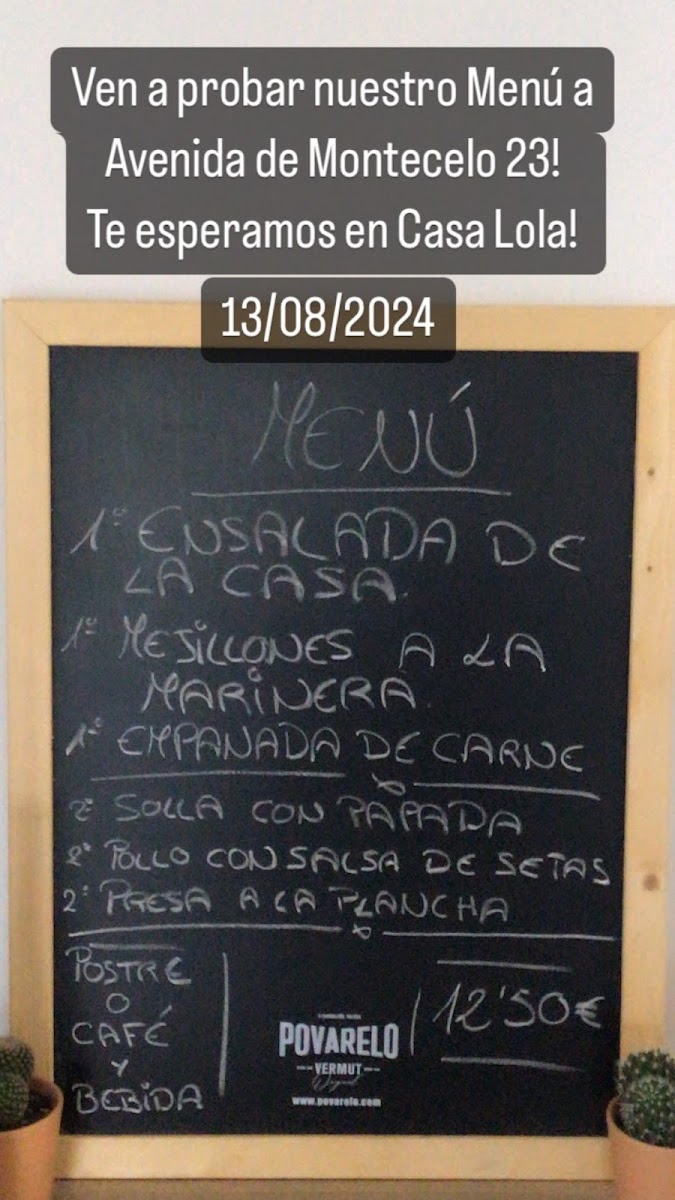 Ven a probar nuestro Menú a
Avenida de Montecelo 23!
Te esperamos en Casa Lola!
13/08/2024
MENÚ
1º ENSALADA DE
LA CASA.
1º MEJILLONES A LA
MARINERA.
1º EMPANADA DE CARNE
2º SOLLA CON PAPADA
2º POLLO CON SALSA DE SETAS
2º PRESA A LA PLANCHA
POSTRE
O
CAFÉ
Y
BEBIDA
12'50€
POVARELO
VERMUT
www.povarelo.com